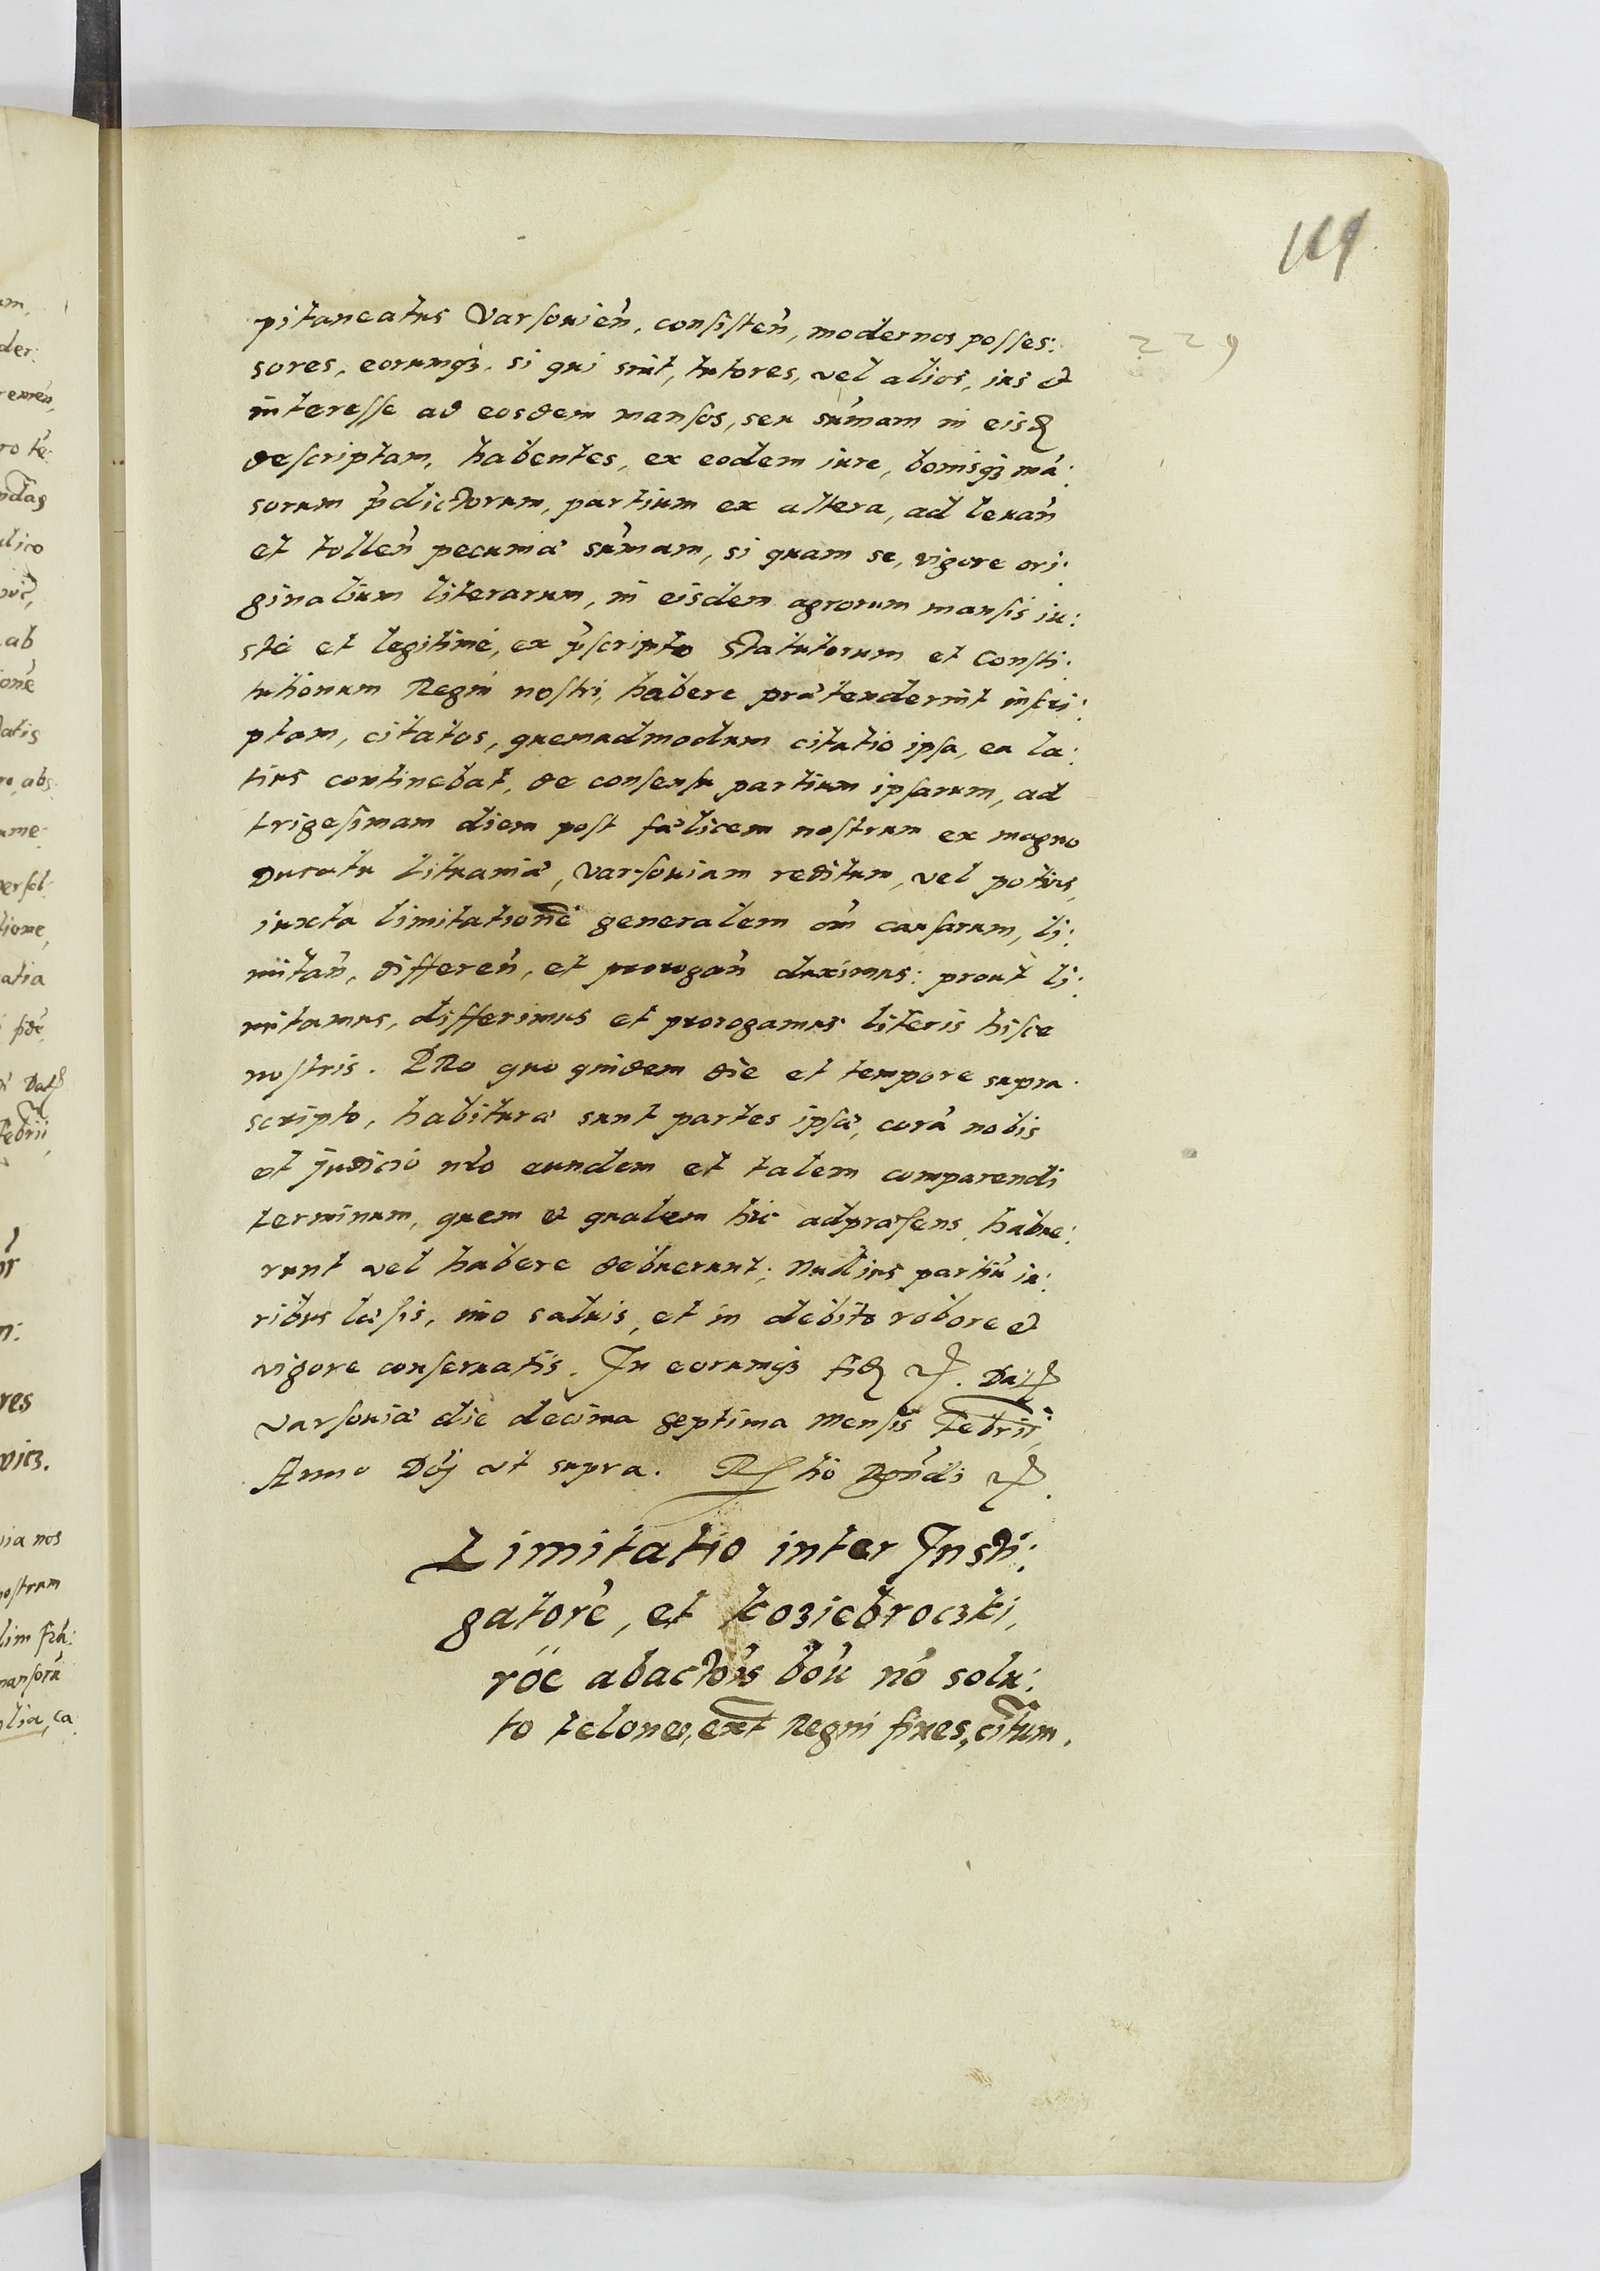 119
229
pitaneatus Varsouień, consisteń, modernos posses:
sores, eorumq3, si qui sint, tutores, vel alios, ius et
interesse ad eosdem mansos, seu sum̃am in eisd
descriptam, habentes, ex eodem iure, bonisq3 mã:
sorum p̃dictorum, partium ex altera, ad leuań
et tolleń pecuniæ sum̃am, si quam se, vigore ori:
ginalium literarum, in eisdem agrorum mansis iu:
stè et legitimè, ex p̃scripto Statutorum et Consti:
tutionum Regni nostri, habere prætenderint inscri:
ptam, citatos, quemadmodum citatio ipsa, ea la:
tius continebat, de consensu partium ipsarum, ad
trigesimam diem post fælicem nostrum ex magno
Ducatu Lituaniæ, Varsouiam reditum, vel potius,
iuxta limitationẽ generalem om̃ causarum, li:
mitań, differeń, et prorogań duximus: prout li:
mitamus, differimus et prorogamus literis hisce
nostris. PRo quo quidem die et tempore supra
scripto, habituræ sunt partes ipsæ, corã nobis
et Judicio nr̃o eundem et talem comparendi
terminum, quem et qualem hic adpræsens habue:
runt vel habere debuerunt; Nullius partiũ iu:
ribus læsis, imo saluis, et in debito robore et
vigore conseruatis. In eorumq3 fid etc. Dat
Varsouiæ die decima septima Mensis Febrii,
Anno Dńj ut supra. R tio Rgńdi etc.
Limitatio inter Insti:
gatorẽ, et Kozicbroczki,
rõe abactoris boũ nõ solu:
to teloneo, ext Regni fines, citum.